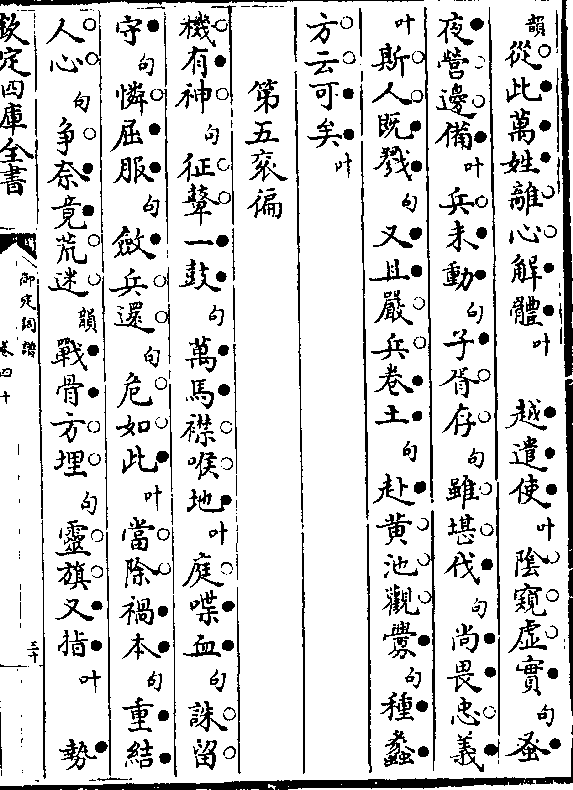 韻從此萬姓離心解體叶　越遣使叶陰窺虛實句蚤
夜營邊備叶兵未動句子胥存句雖堪伐句尚畏忠義
叶斯人既戮句又且嚴兵卷土句赴黄池觀釁句種蠡
方云可矣叶
第五衮徧
機有神句征鼙一鼓句萬馬襟喉地叶庭喋血句誅留
守句憐屈服句斂兵還句危如此叶當除禍本句重結
人心句争奈竟荒迷韻戰骨方埋句靈旗又指叶　勢
欽定四庫全書
御定詞譜
卷四十
三十